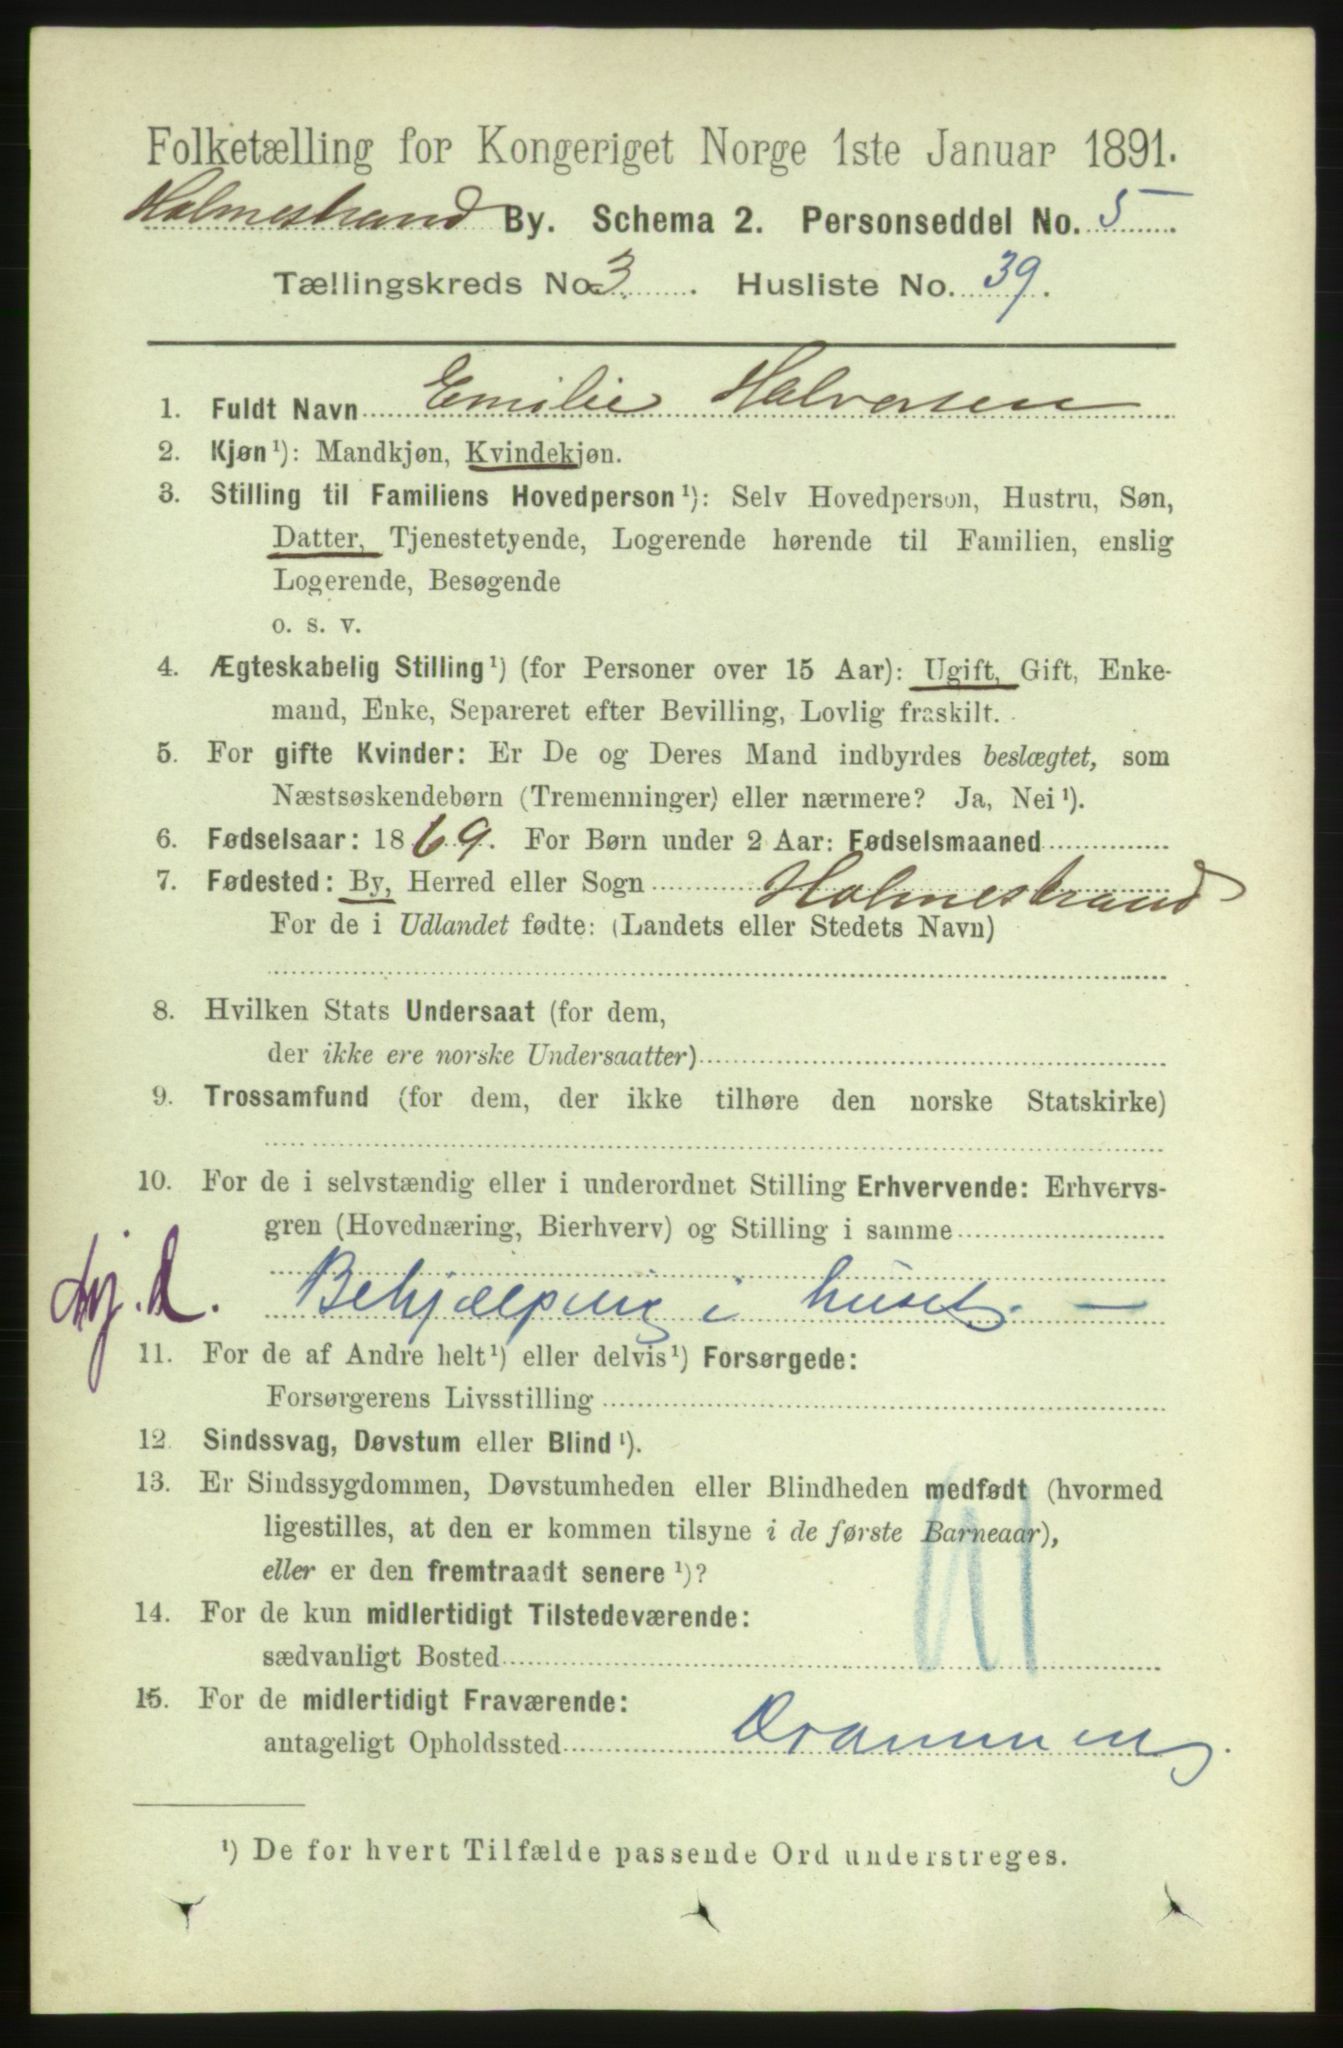 Folketælling for Kongeriget Norge 1ste Januar 1891.
Holmestrand By. Schema 2. Personseddel No. 5
Tællingskreds No. 3. Husliste No. 39.
1. Fuldt Navn Emilie Halvorsen
2. Kjøn ¹): Mandkjøn, Kvindekjøn.
3. Stilling til Familiens Hovedperson ¹): Selv Hovedperson, Hustru, Søn,
Datter, Tjenestetyende, Logerende hørende til Familien, enslig
Logerende, Besøgende
o. s. v.
4. Ægteskabelig Stilling ¹) (for Personer over 15 Aar): Ugift, Gift, Enke-
mand, Enke, Separeret efter Bevilling, Lovlig fraskilt.
5. For gifte Kvinder: Er De og Deres Mand indbyrdes beslægtet, som
Næstsøskendebørn (Tremenninger) eller nærmere? Ja, Nei ¹).
6. Fødselsaar: 1869. For Børn under 2 Aar: Fødselsmaaned
7. Fødested: By, Herred eller Sogn Holmestrand
For de i Udlandet fødte: (Landets eller Stedets Navn)
8. Hvilken Stats Undersaat (for dem,
der ikke ere norske Undersaatter)
9. Trossamfund (for dem, der ikke tilhøre den norske Statskirke)
10. For de i selvstændig eller i underordnet Stilling Erhvervende: Erhvervs-
gren (Hovednæring, Bierhverv) og Stilling i samme
Behjælpelig i huset. —
11. For de af Andre helt ¹) eller delvis ¹) Forsørgede:
Forsørgerens Livsstilling
12. Sindssvag, Døvstum eller Blind ¹).
13. Er Sindssygdommen, Døvstumheden eller Blindheden medfødt (hvormed
ligestilles, at den er kommen tilsyne i de første Barneaar),
eller er den fremtraadt senere ¹)?
14. For de kun midlertidigt Tilstedeværende:
sædvanligt Bosted
15. For de midlertidigt Fraværende:
antageligt Opholdssted Drammen
¹) De for hvert Tilfælde passende Ord understreges.